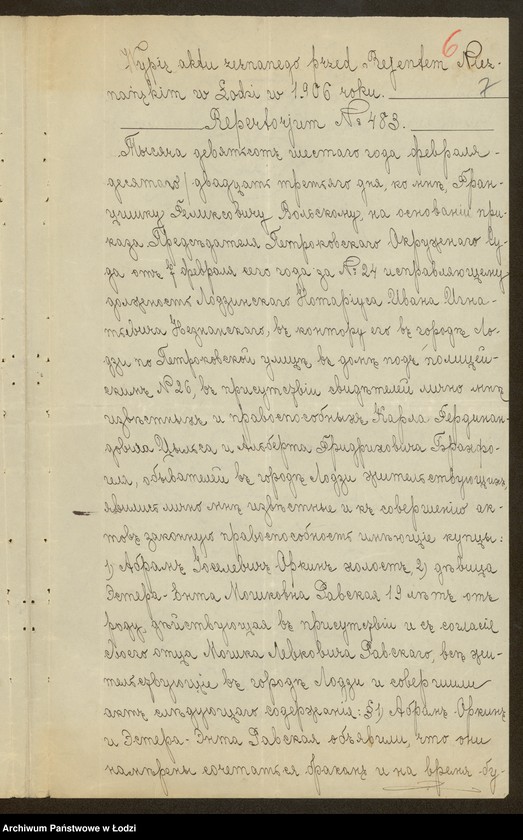 6
Wypis aktu zeznanego przed Rejentem Niez-
nańskim w Łodzi w 1906 roku. 7
Repertorjum № 483.
Тысяча девятьсотъ шестаго года февраля
десятаго/двадцать третьяго дня, ко мнѣ, Фран-
цишку Феликсовичу Вольскому, на основаніи при-
каза Предсѣдателя Петроковскаго Окружнаго Су-
да отъ февраля сего года за № 24 исправляющему
должность Лодзинскаго Нотаріуса Ивана Игна-
тьевича Незнанскаго, въ контору его въ городѣ Ло-
дзи по Петроковской улицѣ въ домѣ подъ полицей-
скимъ № 26, въ присутствіи свидѣтелей лично мнѣ
извѣстныхъ и правоспособныхъ Карла Фердинан-
довича и Альберта Фридриховича
обывателей въ городѣ Лодзи жительствующихъ,
явились лично мнѣ извѣстные и къ совершенію ак-
товъ законную правоспособность имѣющіе купцы:
1) Абрамъ Іоселевичъ Оркинъ холостъ, 2) дѣвица
Эстера-Энта Мошковна Равская 19 лѣтъ отъ
роду, дѣйствующая въ присутствіи и съ согласіе
своего отца Мошка Левковича Равскаго, всѣ жи-
тельствующіе въ городѣ Лодзи и совершили
актъ слѣдующаго содержанія: §1) Абрамъ Оркинъ
и Эстера-Энта Равская объявили, что они
намѣрены сочетаться бракомъ и на время бу-
Archiwum Państwowe w Łodzi